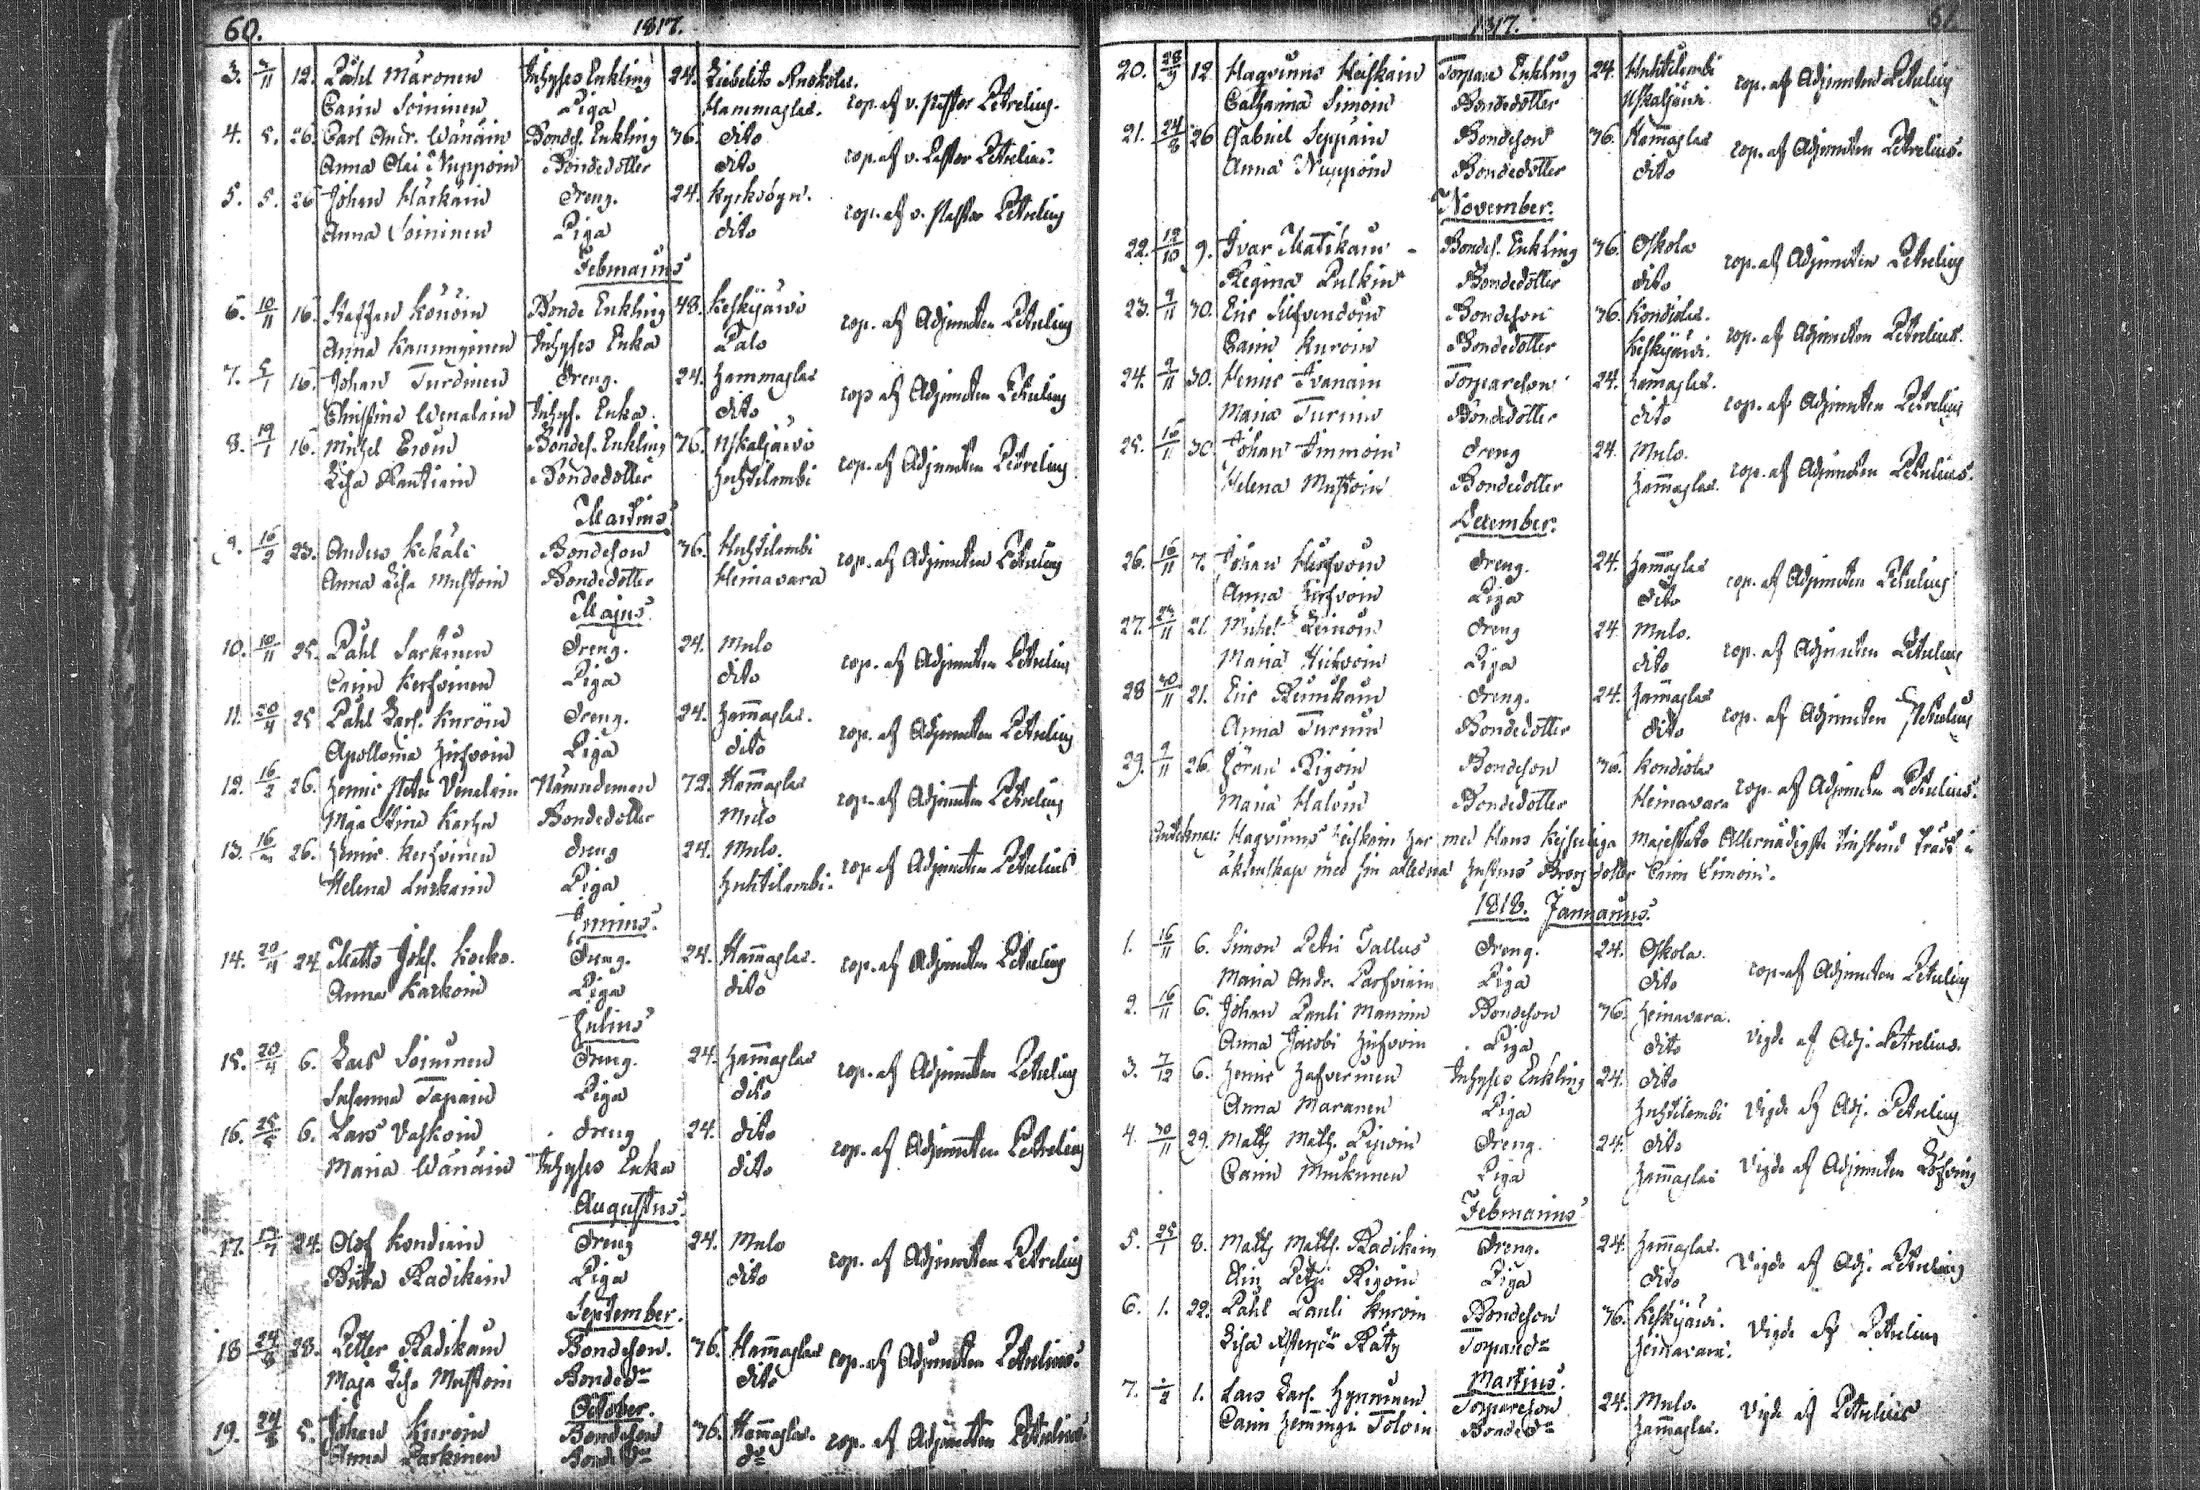 60. 1817.
3. 3/11 12. Påhl Maronen Inhyses Enkling 24. Liebelits Ruokola.
Carin Soininen Piga Hammaslax. cop. af v. Pastor Petrelius.
4. 5. 26. Carl Andr. Wänäin Bondes. Enkling 36. dito
Anna Olai Nuppoin Bondedotter dito cop. af v. Pastor Petrelius.
5. 5. 26 Johan Härkäin Dreng. 24. Kyrkobyn.
Anna Soininen Piga dito cop. af v. Pastor Petrelius
Februarius
6. 10/11 16. Staffan Könöin Bonde Enkling 48. Keskijärvi
Anna Kauunginen Inhyses Enka Palo cop. af Adjuncten Petrelius
7. 5/1 16. Johan Turdinen Dreng. 24. Hammaslax
Christina Wenäläin Inhys. Enka. dito cop af Adjuncten Petrelius
8. 19/1 16. Michel Eroin Bondes. Enkling 36. Uskaljärvi
Lisa Rautiain Bondedotter Huhtilambi cop. af Adjuncten Petrelius
Martius
9. 16/2 23. Anders Kekäle Bondeson 36. Huhtilambi
Anna Lisa Mustoin Bondedotter Heinavara cop. af Adjuncten Petrelius
Majus
10. 10/11 25. Påhl Sarkinen Dreng. 24. Mulo
Carin Kerfvinen Piga dito cop. af Adjuncten Petrelius
11. 20/4 25 Påhl Lars. Kuroin Dreng. 24. Ham̄aslax.
Apollonia Hirfvoin Piga dito cop. af Adjuncten Petrelius
12. 16/2 26. Henric Petri Venäläin Nämndeman 72. Ham̄aslax
Maja Stina Karhu Bondedotter Mulo cop. af Adjuncten Petrelius
13. 26. Henric Kerfvinen Dreng 24. Mulo.
Helena Turkain Piga Huhtilambi. cop af Adjuncten Petrelius
Junius.
14. 20/4 24 Matts Johs. Kocko. Dreng. 24. Ham̄aslax.
Anna Karkoin Piga dito cop. af Adjuncten Petrelius
Julius
15. 20/4 6. Lars Soininen Dreng. 24. Ham̄aslax
Susanna Tapain Piga dito cop. af Adjuncten Petrelius
16. 25/5 6. Lars Vaskoin Dreng 24. dito
Maria Wänäin Inhyses Enka dito cop. af Adjuncten Petrelius
Augustus.
17. 24. Olof Kondiain Dreng 24. Mulo
Brita Radikain Piga dito cop. af Adjuncten Petrelius
September.
18 24/8 28. Petter Radikain Bondeson. 36. Ham̄aslax
Maja Lisa Mustoin Bonded:r dito cop. af Adjuncten Petrelius.
October.
19. 24/8 5. Johan Kuroin Bondeson 36. Ham̄aslax.
Anna Parkinen Bonded:r d:o cop. af Adjuncten Petrelius.
1817. 61.
20. 28/9 12 Magnus Heiskain Torpare Enkling 24. Huhtilambi
Catharina Simoin Bondedotter Uskaljärvi cop. af Adjuncten Petrelius
21. 24/8 26 Gabriel Seppäin Bondeson 36. Ham̄aslax
Anna Nuppoin Bondedotter dito cop. af Adjuncten Petrelius.
November.
22. 12/10 9. Ivar Matikain Bondes. Enkling 36. Oskola
Regina Pulkin Bondedotter dito cop. af Adjuncten Petrelius
23. 9/11 30. Eric Silfvendoin Bondeson 36. Kondiolax.
Carin Kuroin Bondedotter Keskijärvi. cop. af Adjuncten Petrelius.
24. 9/11 30. Henric Ivanain Torpareson 24. Ham̄aslax.
Maria Turuin Bondedotter dito cop. af Adjuncten Petrelius
25. 16/11 30. Johan Immoin Dreng 24. Mulo.
Helena Mustoin Bondedotter Ham̄aslax. cop. af Adjuncten Petrelius.
December.
26. 16/11 7. Johan Hirfvoin Dreng. 24. Ham̄aslax
Anna Hirfvoin Piga dito cop. af Adjuncten Petrelius
27. 11 21. Michel Leinoin Dreng 24 Mulo.
Maria Hirfvoin Piga dito cop. af Adjuncten Petrelius
28 30/11 21. Eric Reinikain Dreng. 24. Ham̄aslax
Anna Turuin Bondedotter dito cop. af Adjuncten Petrelius
29. 9/11 26 Göran Rigoin Bondeson 36. Kondiolax
Maria Haloin Bondedotter Heinavara cop. af Adjuncten Petrelius.
Anteknas: Magnus Heiskain har med Hans Kejserliga Majestäts Allernådigste Tilstånd trädt i
äktenskap med sin aflidna hustrus Brorsdotter Carin Simoin.
1818. Januarius.
1. 16/11 6. Simon Petri Tallus Dreng. 24. Oskola.
Maria Andr. Parfviain Piga dito cop. af Adjuncten Petrelius
2. 16/11 6. Johan Pauli Mannin Bondeson 36. Heinavara.
Anna Jacobi Hirfvoin Piga dito vigde af Adj. Petrelius.
3. 7/12 6. Henric Hafverinen Inhyses Enkling 24. dito
Anna Maranen Piga Huhtilambi Vigde af Adj. Petrelius
4. 30/11 29. Matts Matts. Piipoin Dreng. 24. dito
Carin Muikunen Piga Ham̄aslax Vigde af Adjuncten Löfving
Februarius
5. 25/1 8. Matts Matts. Radikain Dreng. 24. Ham̄aslax.
Elin Petri Rigoin Piga dito Vigde af Adj. Petrelius
6. 1. 22. Påhl Pauli Kuroin Bondeson 36. Keskijärvi.
Lisa Räty Torpared:r Heinavara. Vigde af Petrelius
Martius.
7. 1. Lars Lars. Hynninen Torpareson 24. Mulo.
Carin Hemmingi Toloin Bonded:r Ham̄aslax. Vigde af Petrelius